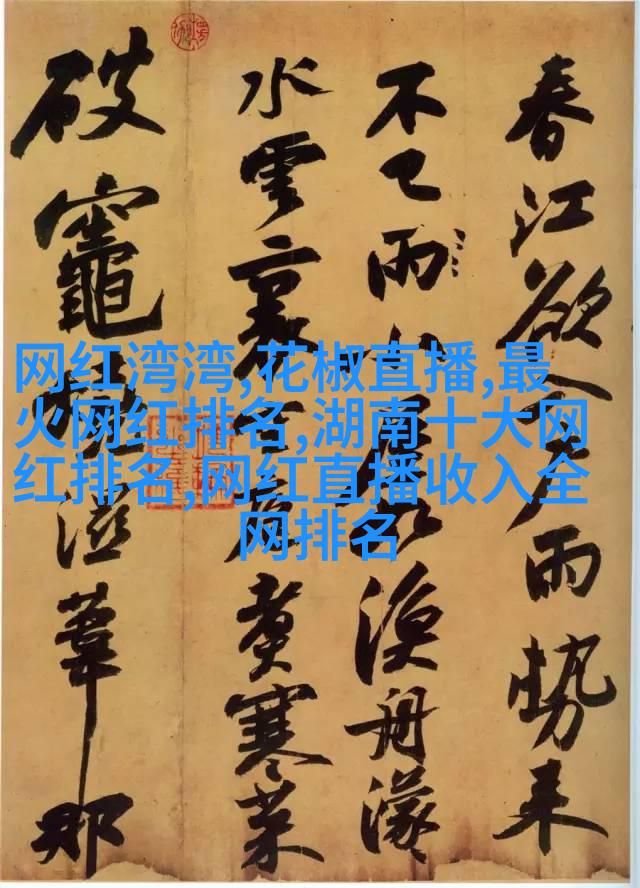 网红湾湾,花椒直播,最
火网红排名,湖南十大网
红排名,网红直播收入全
网排名
春江欲入户雨勢来
不已雨小屋如漁舟濛
水雲裏空庖煮寒菜
破竈燒濕葦那